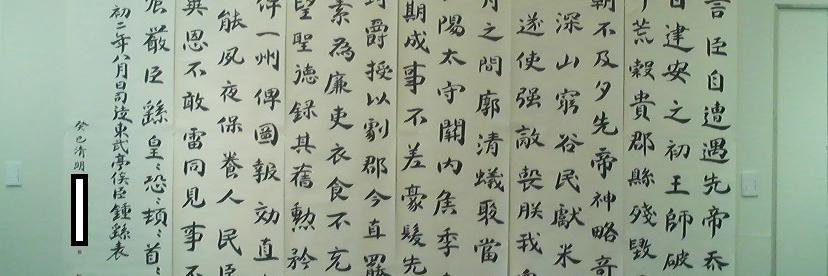 言臣自遭遇先帝忝
自建安之初王師破
年荒穀貴郡縣殘毀
朝不及夕先帝神略奇
深山窮谷民獻米
遂使强敵喪朕我
月之間廓清蟻聚當
陽太守關内侯季
期成事不差豪髮先
封爵授以劇郡今直罷
素為廉吏衣食不充
望聖德錄其舊勲矜
俾一州俾圖報効直
能夙夜保養人民臣
異恩不敢雷同見事不
宸嚴臣繇皇〻恐〻頓〻首〻
初二年八月日司徒東武亭侯臣鍾繇表
癸巳清明